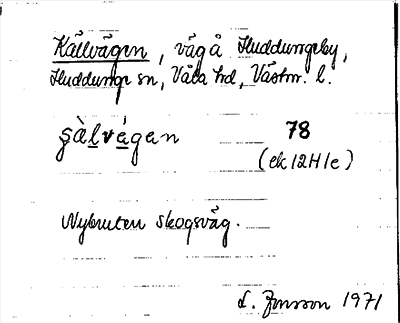 Källvägen, väg å Huddungeby,
Huddunge sn, Våla hd, Västm. l.
şàlvägen 78
(ek 12H1e)
Nybruten skogsväg.
L. Jonsson 1971